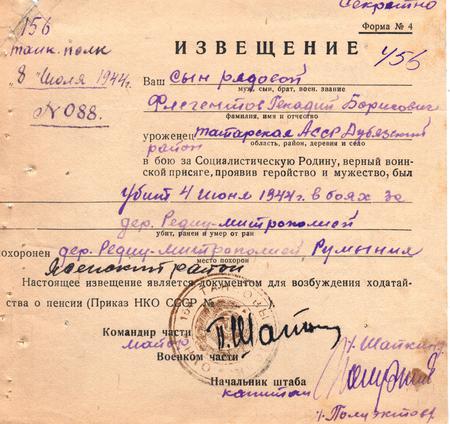 Секретно
156
Форма № 4
танк. полк
ИЗВЕЩЕНИЕ
456
"8" июля 1944 г.
№ 088.
Ваш сын рядовой
муж, сын, брат, воен. звание
Флегентов Генадий Борисович
фамилия, имя и отчество
уроженец Татарская АССР Дубязский
область, район, деревня и село
район
в бою за Социалистическую Родину, верный воин-
ской присяге, проявив геройство и мужество, был
убит 4 июня 1944 г. в боях за
дер. Редиу-Митрополией
убит, ранен и умер от ран
похоронен дер. Редиу-Митрополией, Румыния
место похорон
Ясский район
Настоящее извещение является документом для возбуждения ходатай-
ства о пенсии (Приказ НКО СССР №
Командир части
майор
П. Шапкин
/ Шапкин
Военком части
Начальник штаба
капитан
/ Полуэктов